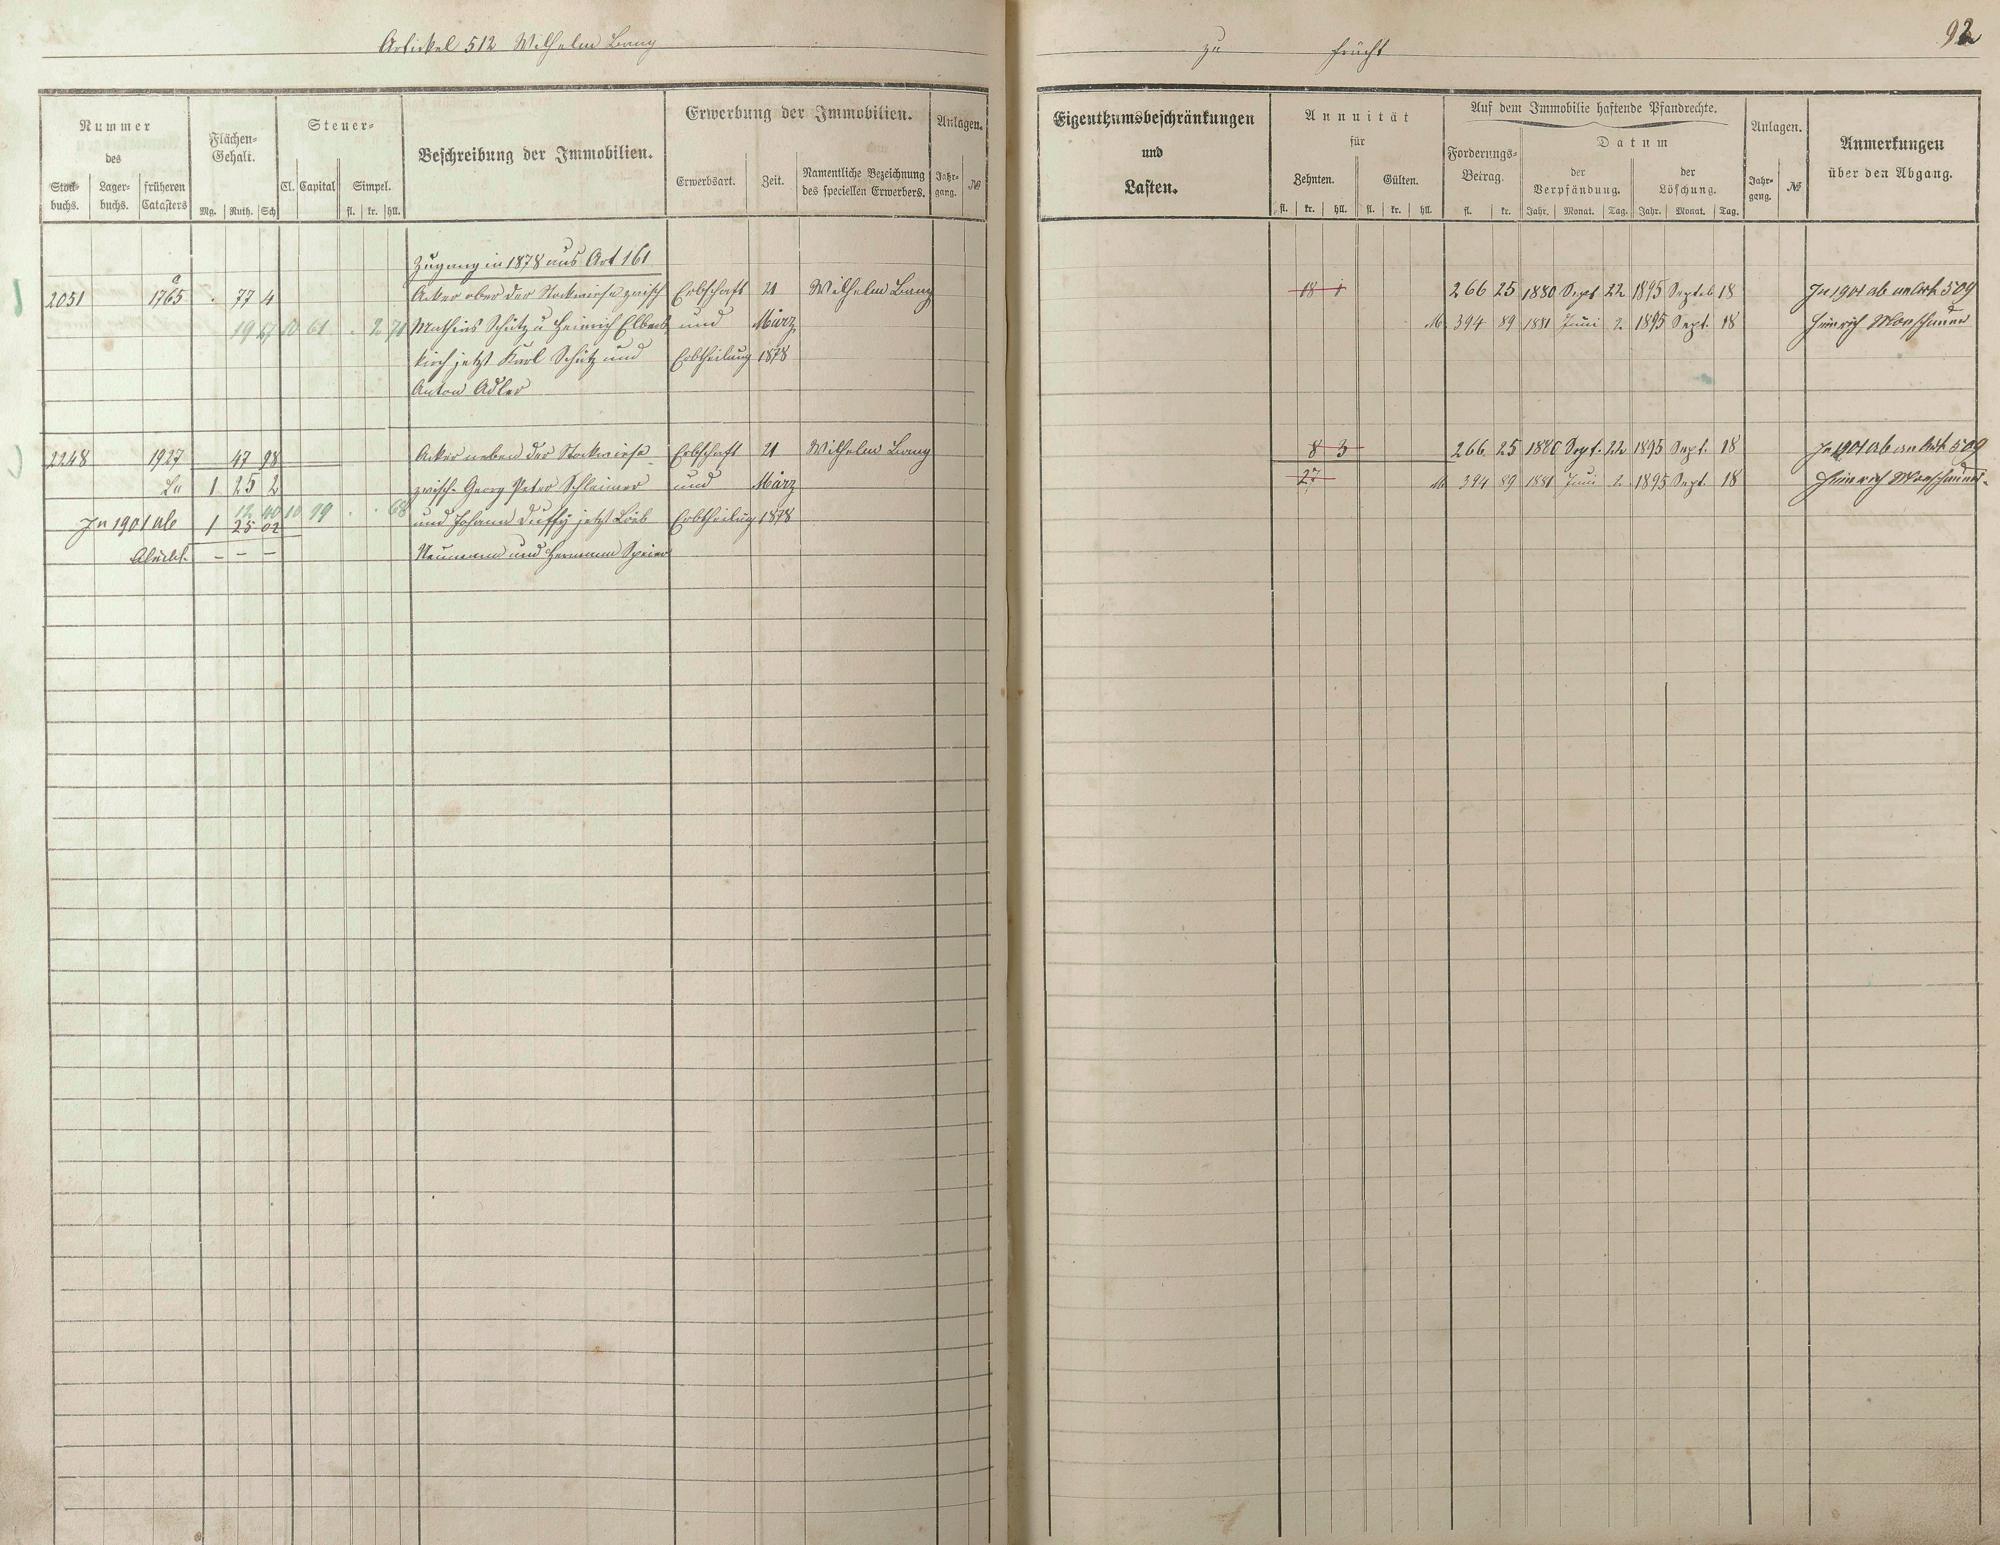 Artickel 512 Wilhelm Bang
zu Frücht
92
Nummer
des
Stockbuchs. Lagerbuchs. früheren Catasters
Flächen-Gehalt.
Mg. Ruth. Sch
Steuer-
Cl. Capital Simpel.
fl. kr. hll.
Beschreibung der Immobilien.
Erwerbung der Immobilien.
Erwerbsart. Zeit. Namentliche Bezeichnung des speciellen Erwerbers.
Anlagen.
Jahrgang. №
Eigenthumsbeschränkungen
und
Lasten.
Annuität
für
Zehnten. Gülten.
fl. kr. hll. fl. kr. hll.
Auf dem Immobilie haftende Pfandrechte.
Forderungs-Betrag.
fl. kr.
Datum
der Verpfändung. der Löschung.
Jahr. Monat. Tag. Jahr. Monat. Tag.
Anlagen.
Jahrgang. №
Anmerkungen
über den Abgang.
Zugang in 1878 aus Art 161
2051 1765 a . 77 4 Acker ober der Stockwiese zwisch Erbschaft 21 Wilhelm Bang 18 1 266 25 1880 Sept 22 1895 Septeb 18 In 1901 ab an Art. 509
19 10 61 . 2 71 Mathias Schütz u Heinrich Elbert und März M. 394 89 1881 Juni 2. 1895 Sept. 18 Heinrich
kirch jetzt Karl Schütz und Erbtheilung 1878
Anton Adler
2248 1927 47 98 Acker neben der Stockwiese Erbschaft 21 Wilhelm Bang 8 3 266 25 1880 Sept. 22 1895 Sept. 18 In 1901 ab an Art. 509
1 25 2 zwisch. Georg Peter Schleimer und März 27 M 394 89 1881 Juni 2 1895 Sept. 18 Heinrich
12 40 10 99 . . 68
In 1901 ab 1 25 02 und Johann Duffy jetzt Erbtheilug 1878
– – – Neumann und Hermann Speier